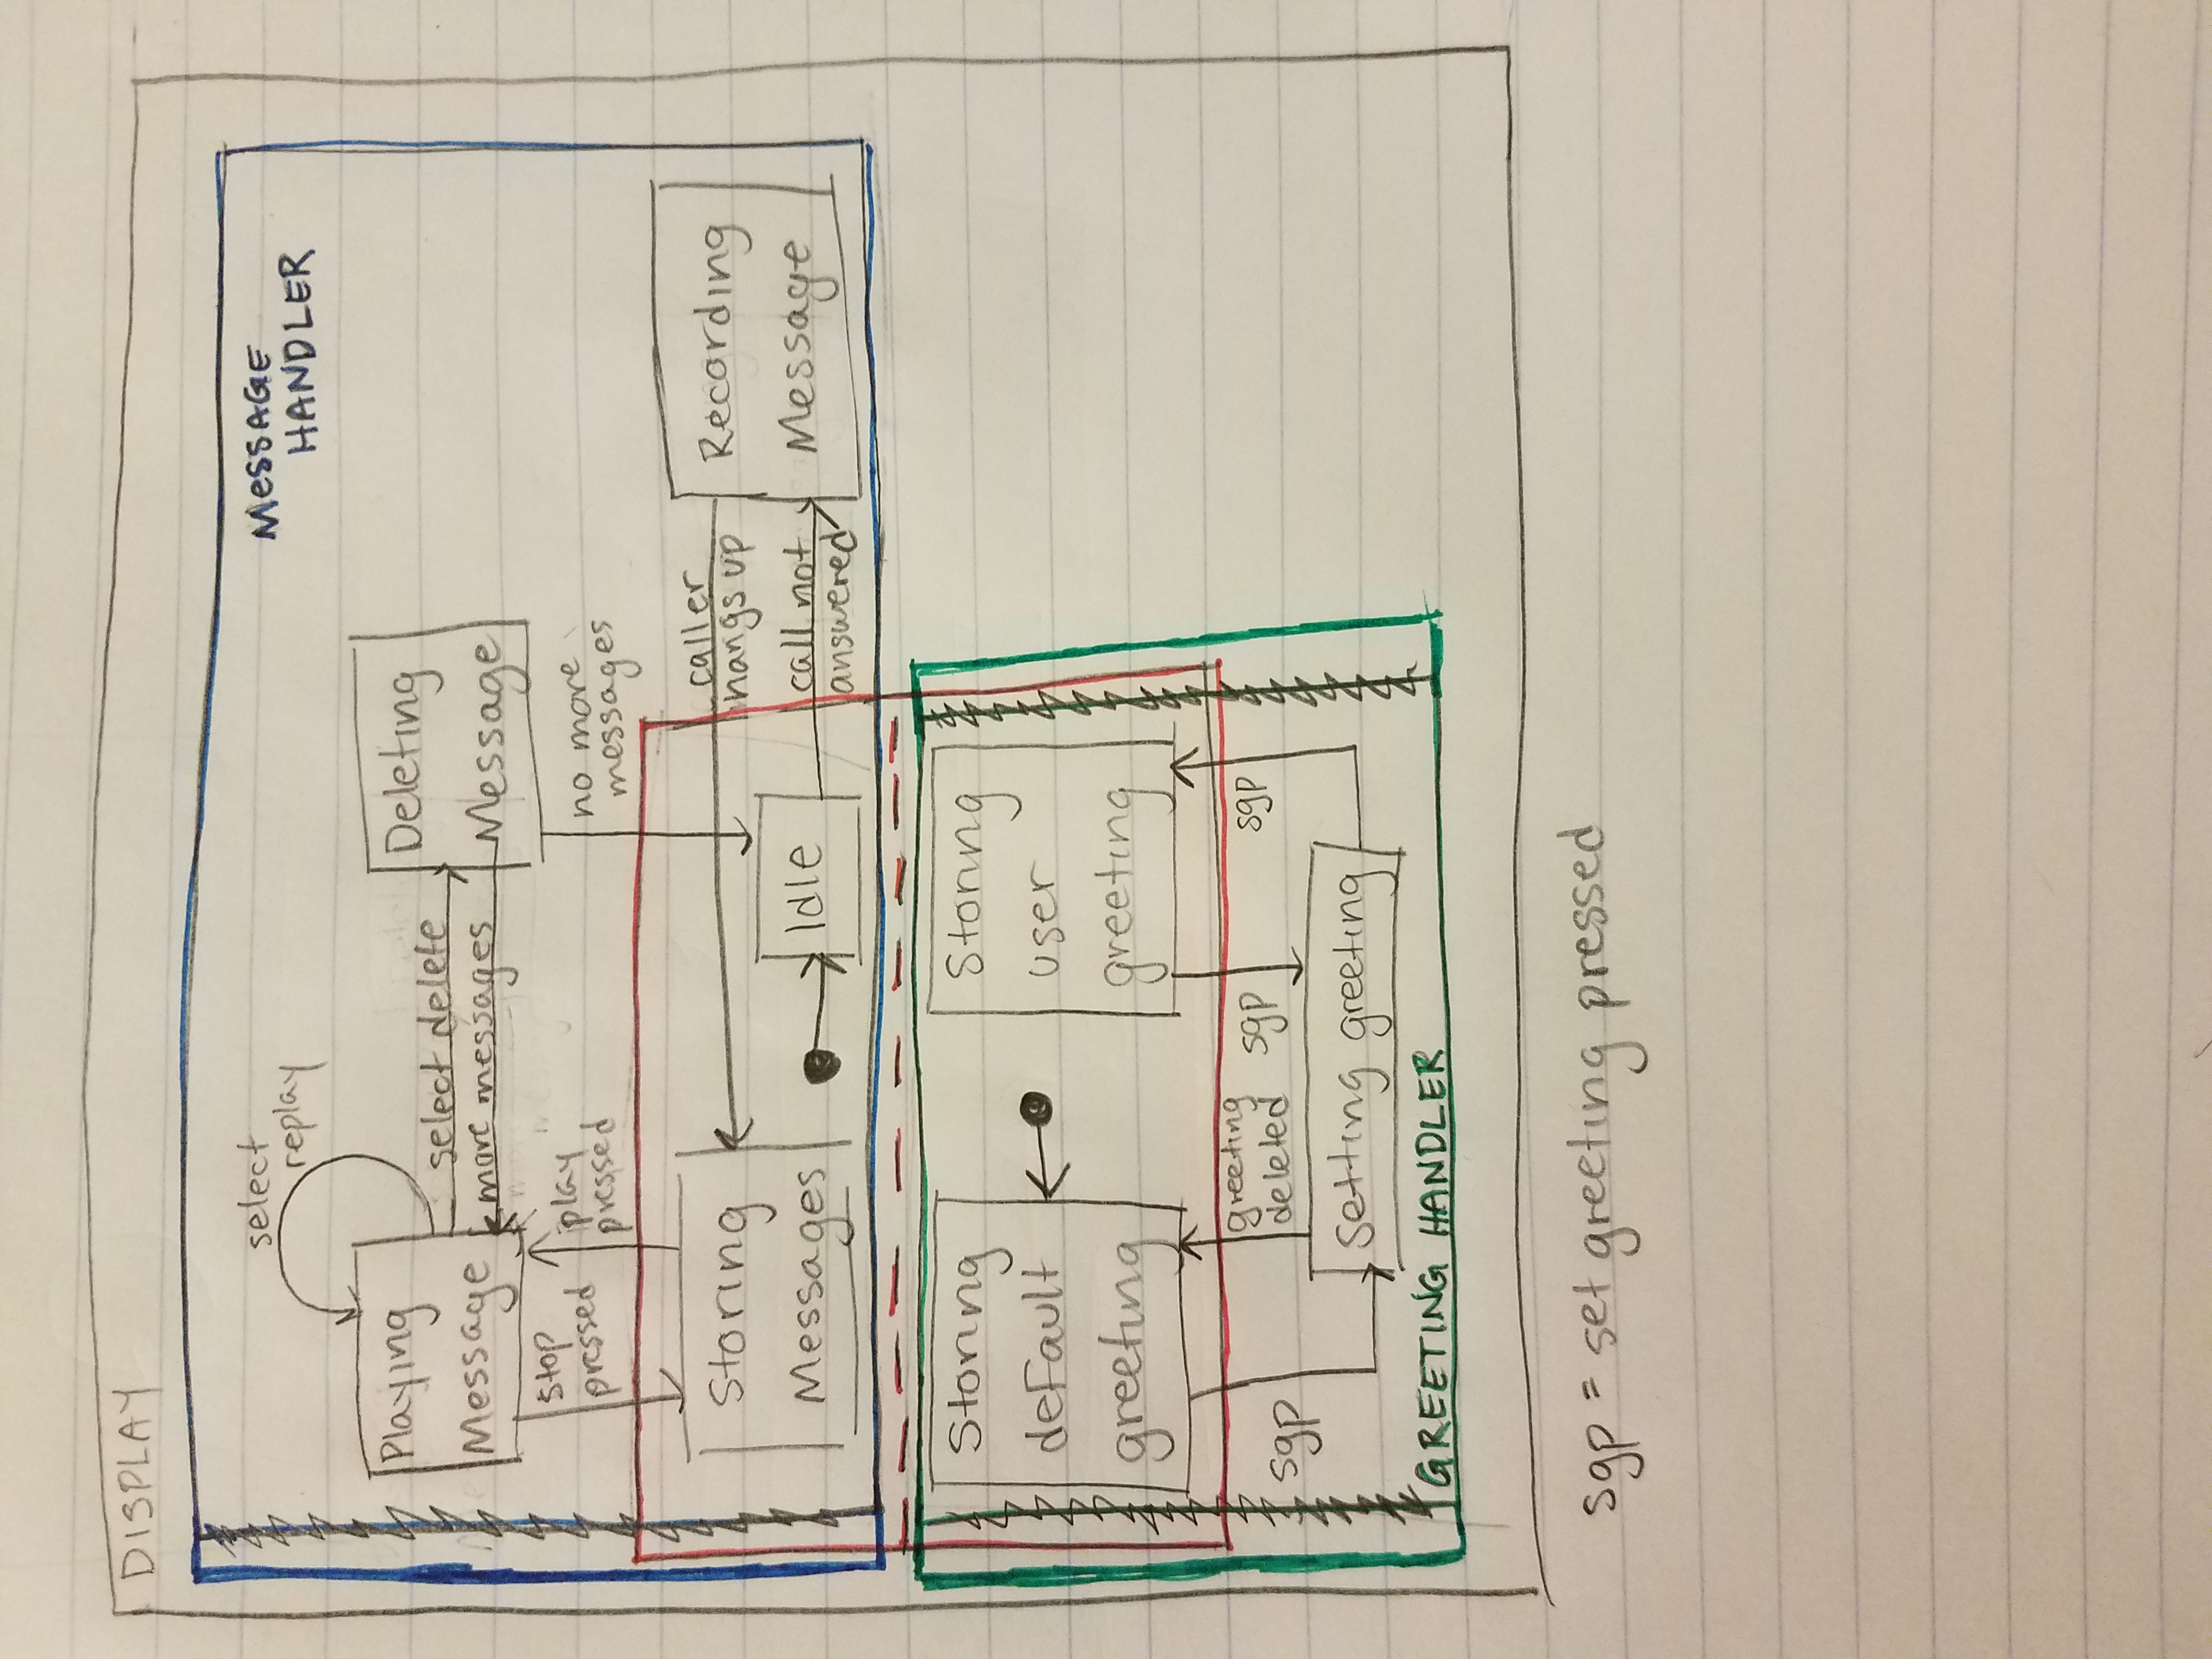 DISPLAY
MESSAGE
HANDLER
select
replay
Playing
Message
select delete
more messages
Deleting
Message
stop
pressed
play
pressed
no more
messages
Storing
Messages
Idle
caller
hangs up
call not
answered
Recording
Message
Storing
default
greeting
Storing
user
greeting
sgp
greeting
deleted
sgp
sgp
Setting greeting
GREETING HANDLER
sgp = set greeting pressed